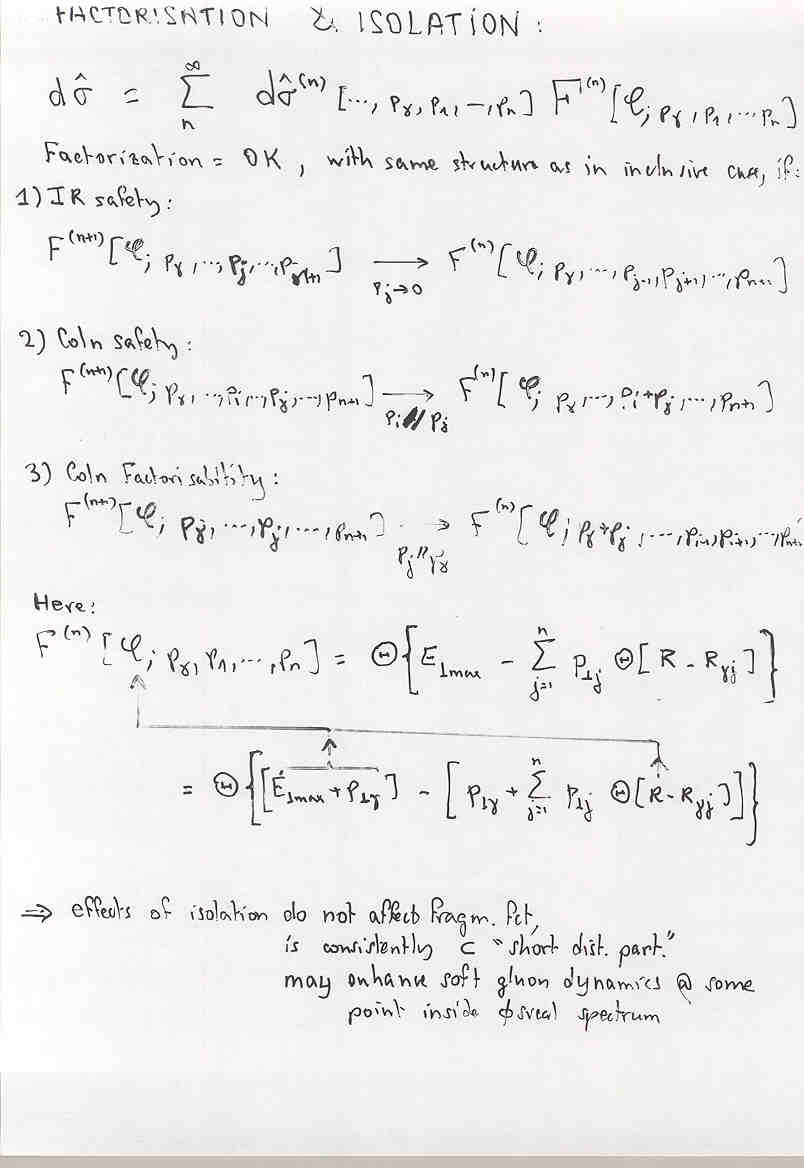 FACTORISATION & ISOLATION :
dσ̂ = Σ_n^∞ dσ̂^(n) [..., p_γ, p_1, -, p_n] F^(n) [φ; p_γ, p_1, ... p_n]
Factorization = OK, with same structure as in inclusive case, if:
1) IR safety :
F^(n+1) [φ; p_γ, ..., p_j, ..., p_n+1] → F^(n) [φ; p_γ, ..., p_j-1, p_j+1, ..., p_n+1]
p_j→0
2) Coln safety :
F^(n+1) [φ; p_γ, ..., p_i, .., p_j, ..., p_n+1] → F^(n) [φ; p_γ, ..., p_i+p_j, ..., p_n+1]
p_i // p_j
3) Coln Factorisability :
F^(n+1) [φ; p_γ, ..., p_j, ..., p_n+1] → F^(n) [φ; p_γ+p_j, ..., p_i-1, p_i+1, ..., p_n+1
p_j // p_γ
Here:
F^(n) [φ; p_γ, p_1, ..., p_n] = Θ{ E_⊥max - Σ_{j=1}^n p_⊥j Θ[R - R_γj] }
= Θ{ [E_⊥max + p_⊥γ] - [ p_⊥γ + Σ_{j=1}^n p_⊥j Θ[R - R_γj] ] }
⇒ effects of isolation do not affect Fragm. Fct,
is consistently ⊂ "short dist. part."
may enhance soft gluon dynamics @ some
point inside φsical spectrum